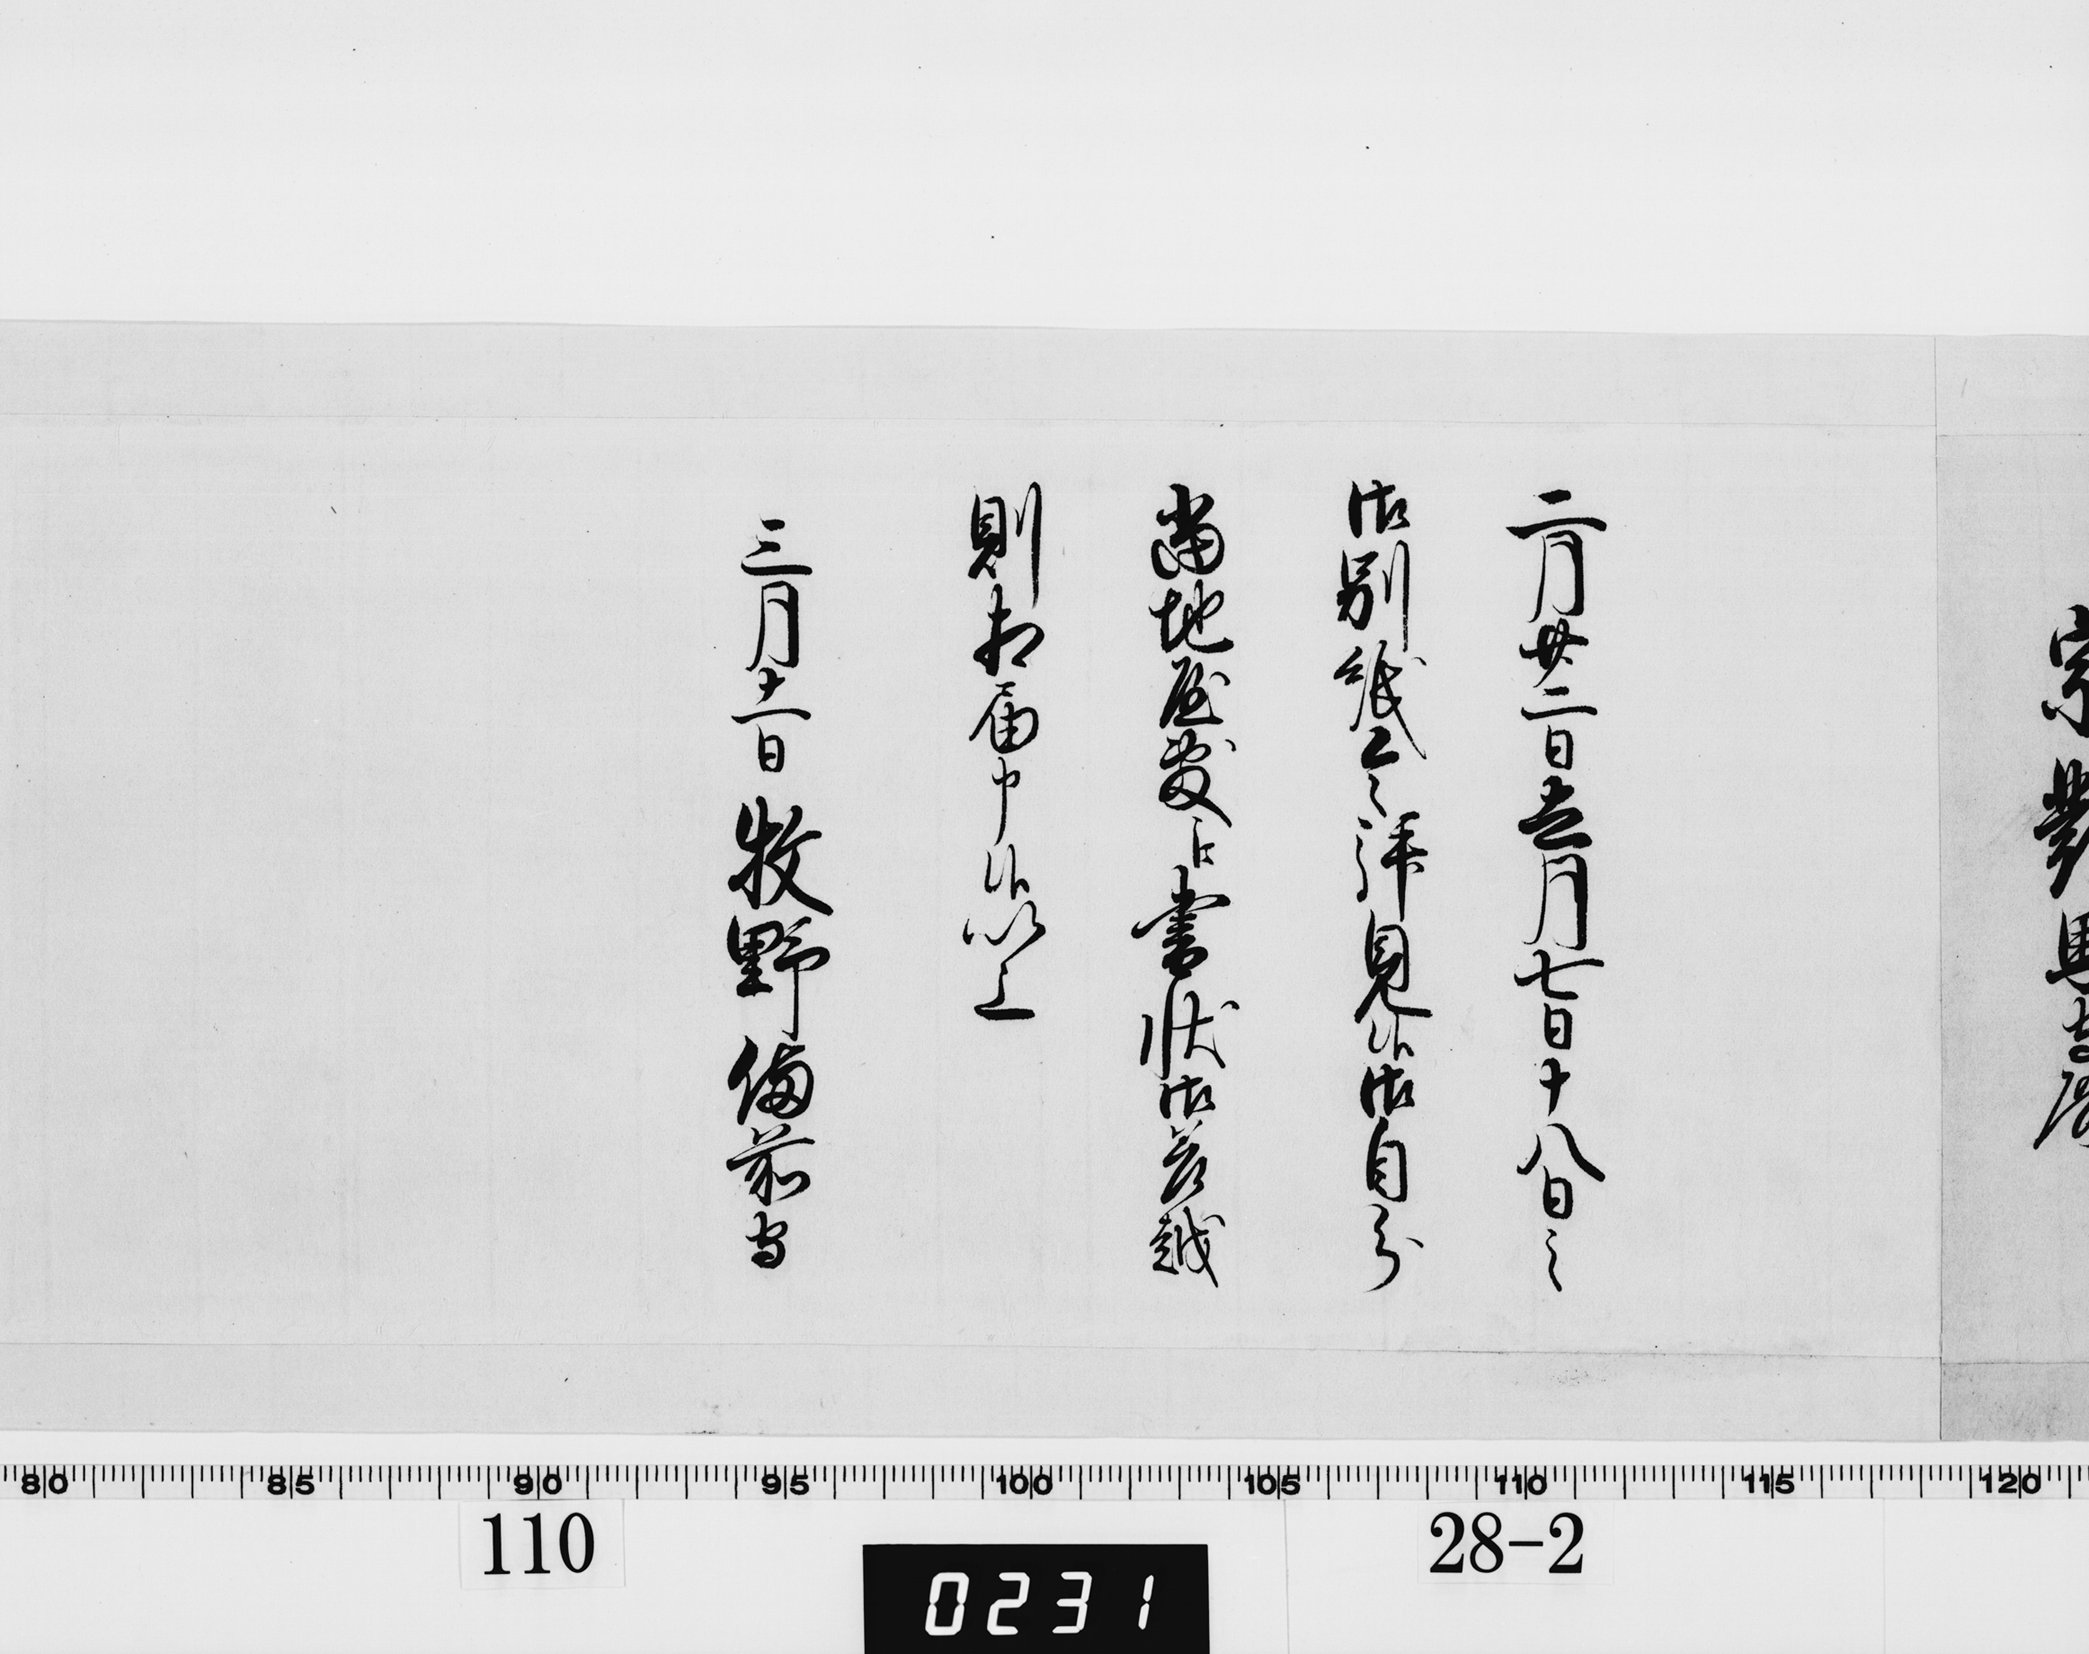 宗對馬守殿
二月廿二日去月七日十八日之
御別紙令拝見候御自分
當地屋敷江書状御差越
則相届申候以上
三月十一日牧野備前守
80 85 90 95 100 105 110 115 120
110 28-2
0231